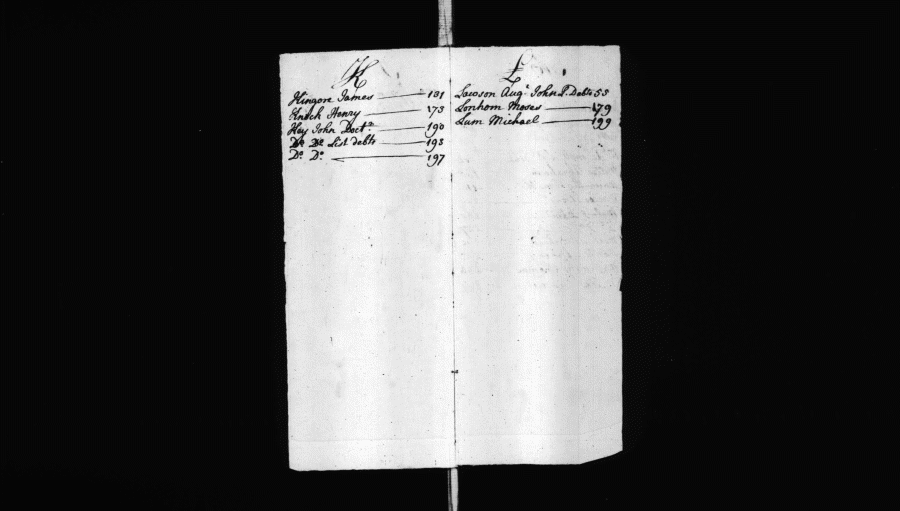 K
Kingore James 131
Knock Henry 173
Key John Doctr 190
Do Do List debts 195
Do Do 197
L
Lawson Augt John P. Debts 55
Lonhom Moses 179
Lum Michael 199